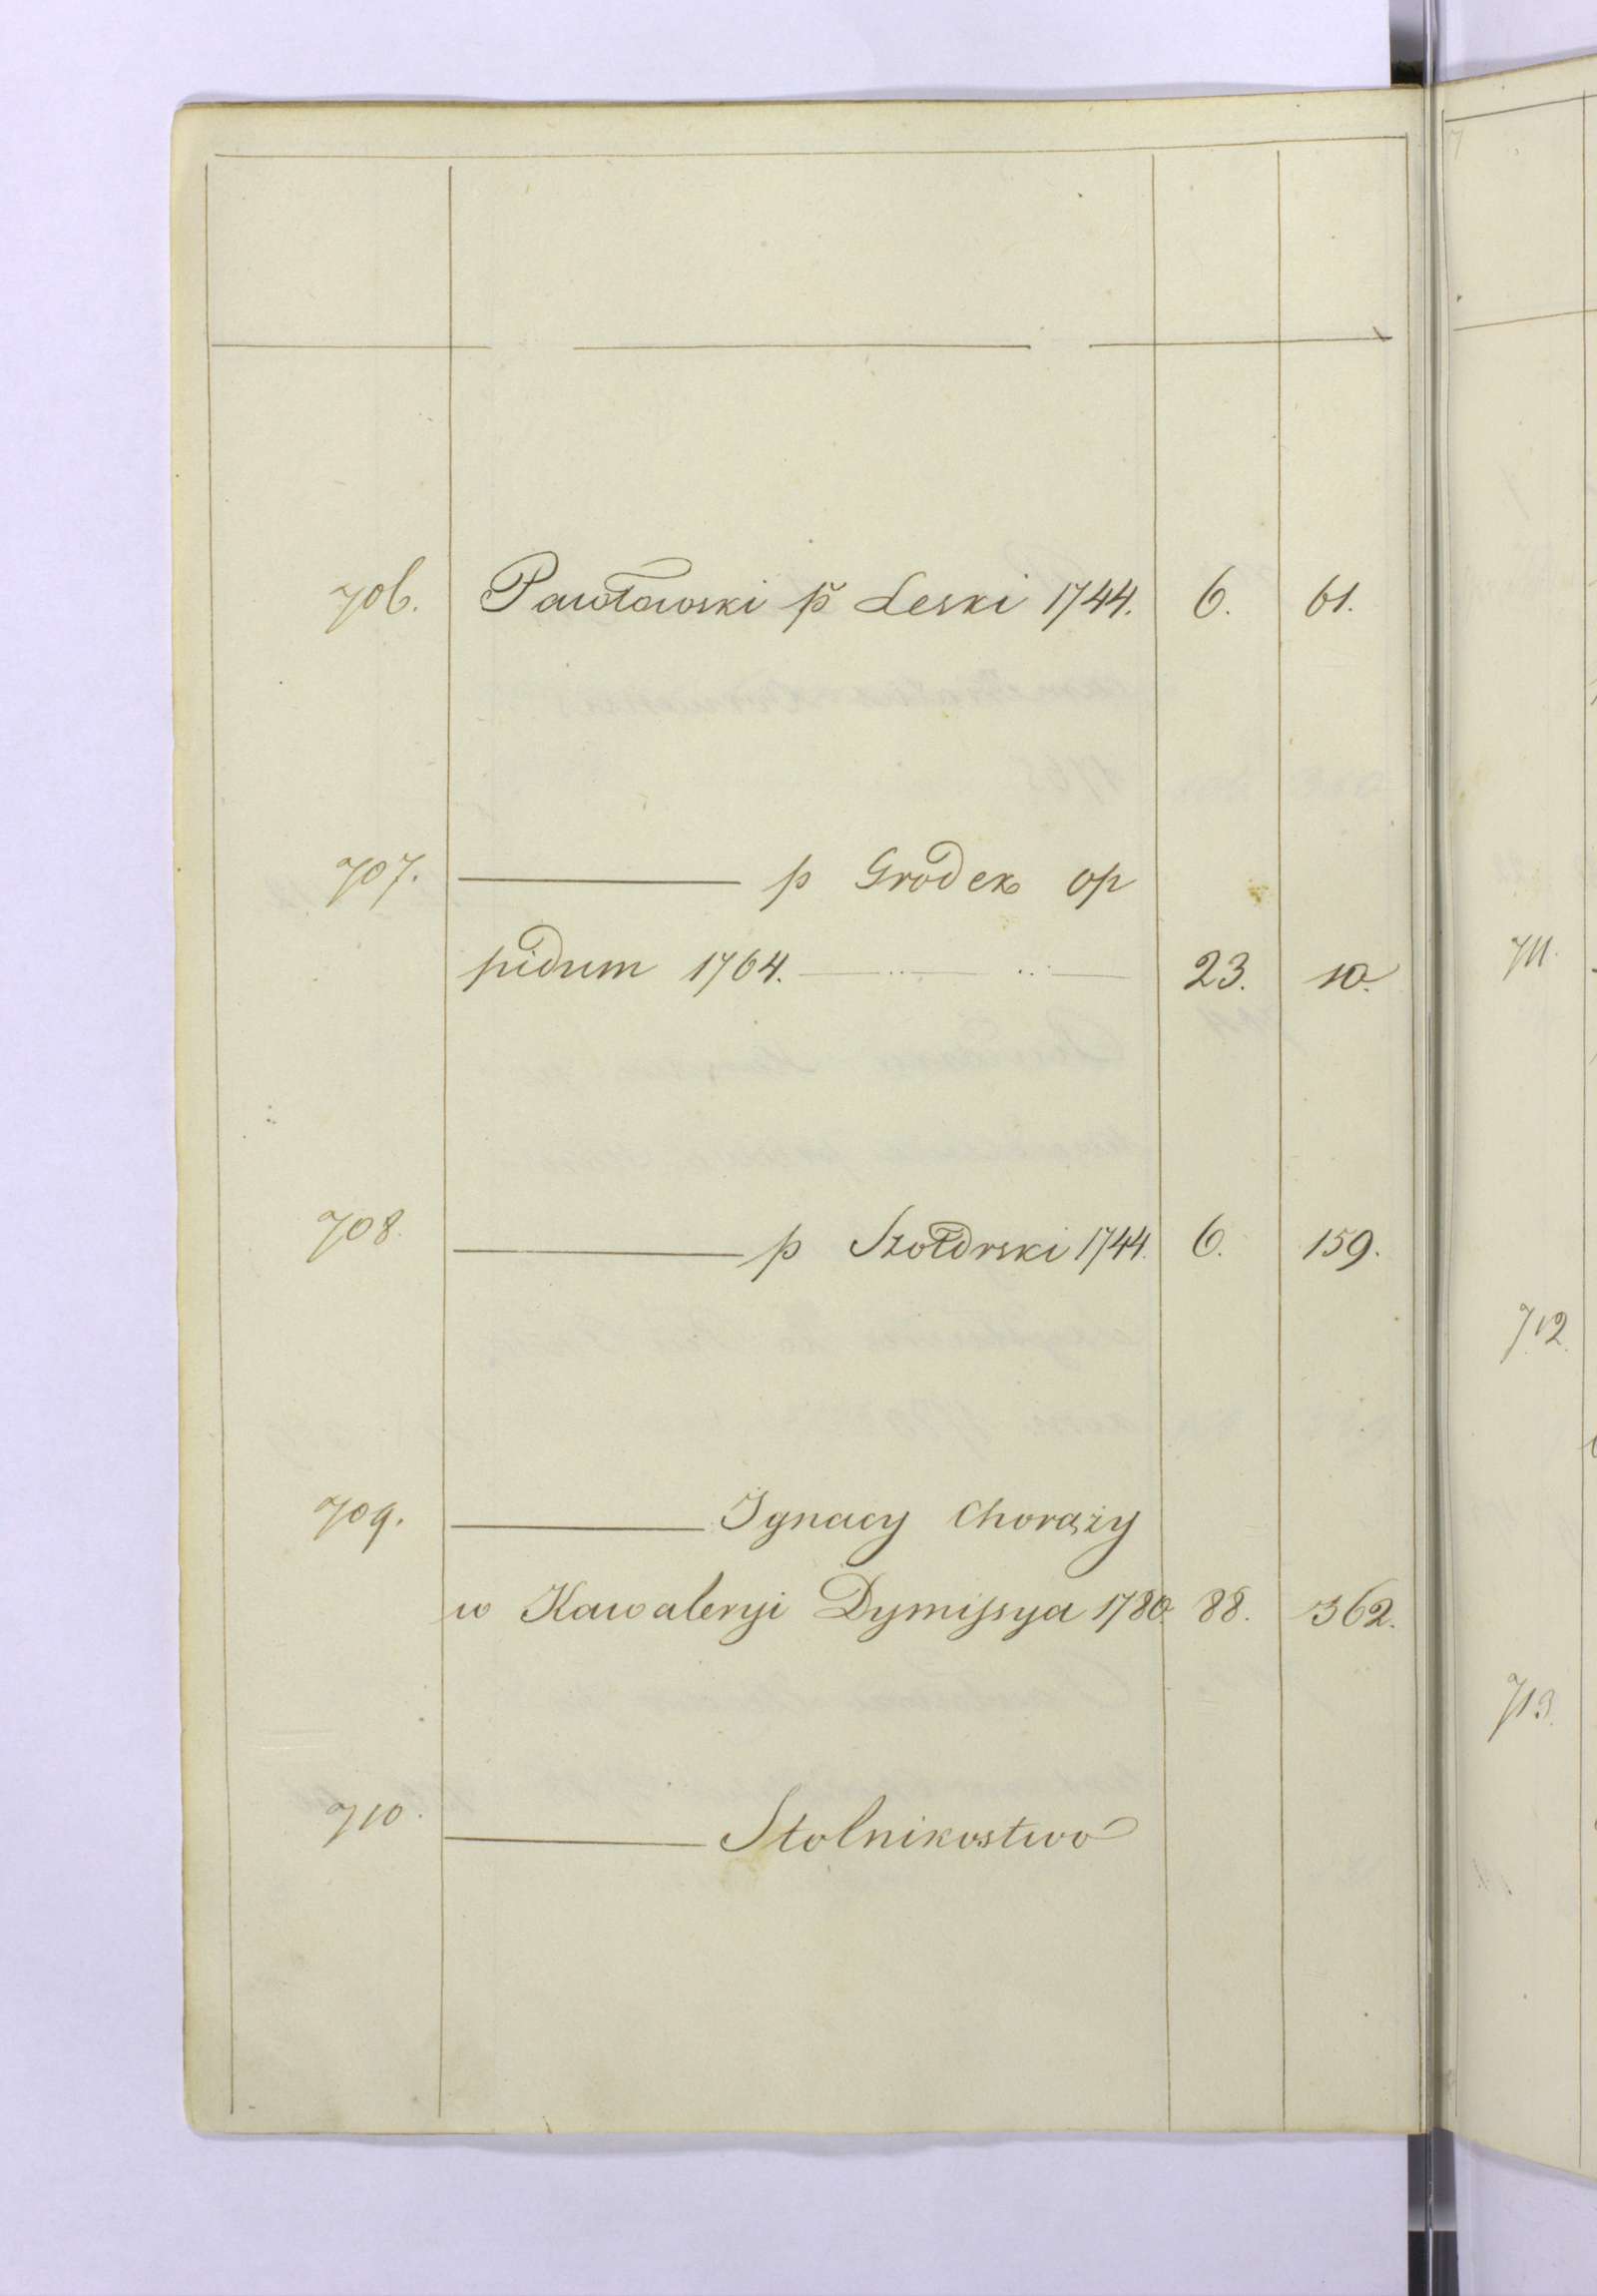 706. Pawłowski p Leski 1744. 6. 61.
707. ——— p Grodek op
pidum 1764. 23. 10.
708. ——— p Szołdrski 1744. 6. 159.
709. ——— Ignacy Chorąży
w Kawaleryi Dymissya 1780. 88. 362.
710. ——— Stolnikostwo
711.
712.
713.